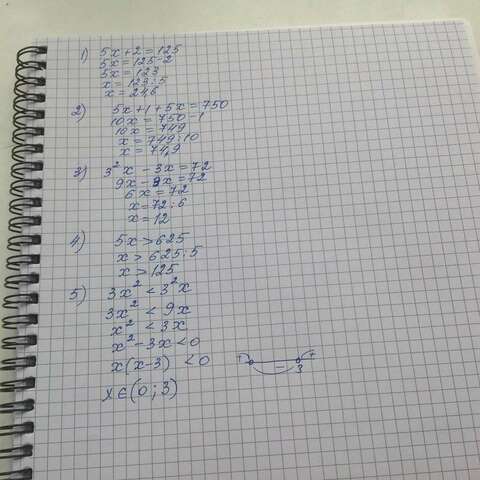 1) 5x+2=125
5x=125-2
5x=123
x=123:5
x=24,6
2) 5x+1+5x=750
10x=750-1
10x=749
x=749:10
x=74,9
3) 3²x-3x=72
9x-3x=72
6x=72
x=72:6
x=12
4) 5x>625
x>625:5
x>125
5) 3x²<3²x
3x²<9x
x²<3x
x²-3x<0
x(x-3)<0
+ - + 3
x∈(0;3)